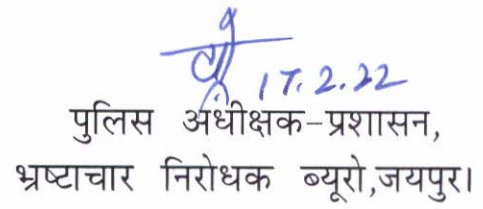 17.2.22
पुलिस अधीक्षक-प्रशासन,
भ्रष्टाचार निरोधक ब्यूरो,जयपुर।